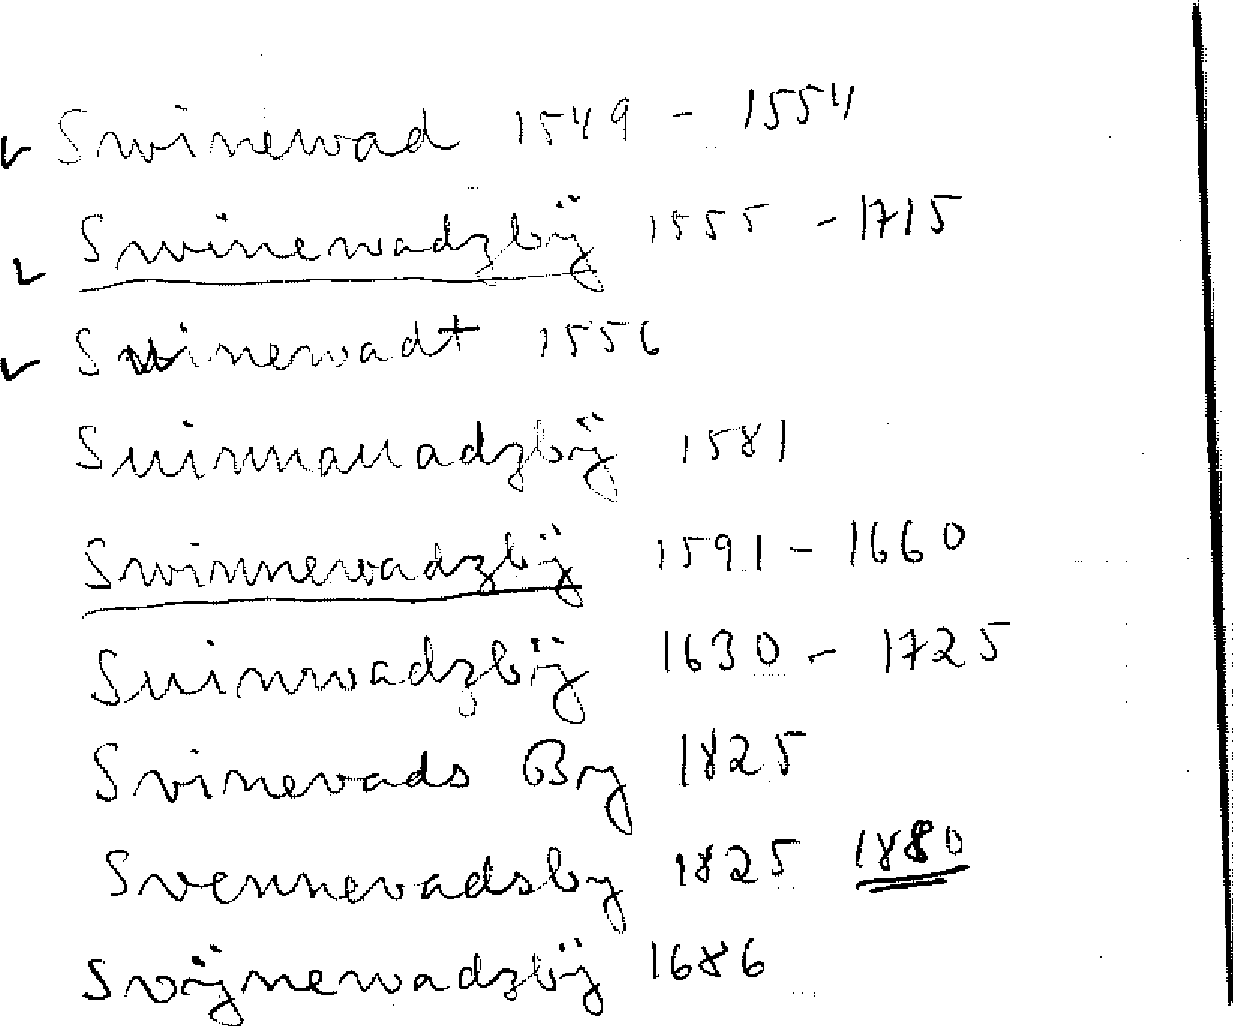 ✓ Swinewad 1549 - 1554
✓ Swinewadzbÿ 1555 - 1715
✓ Swinewadt 1556
Suinnauadzbÿ 1581
Swinnewadzbÿ 1591 - 1660
Suinwadzbÿ 1630 - 1725
Svinevads By 1825
Svennevadsby 1825 1880
Svÿnewadzbÿ 1686